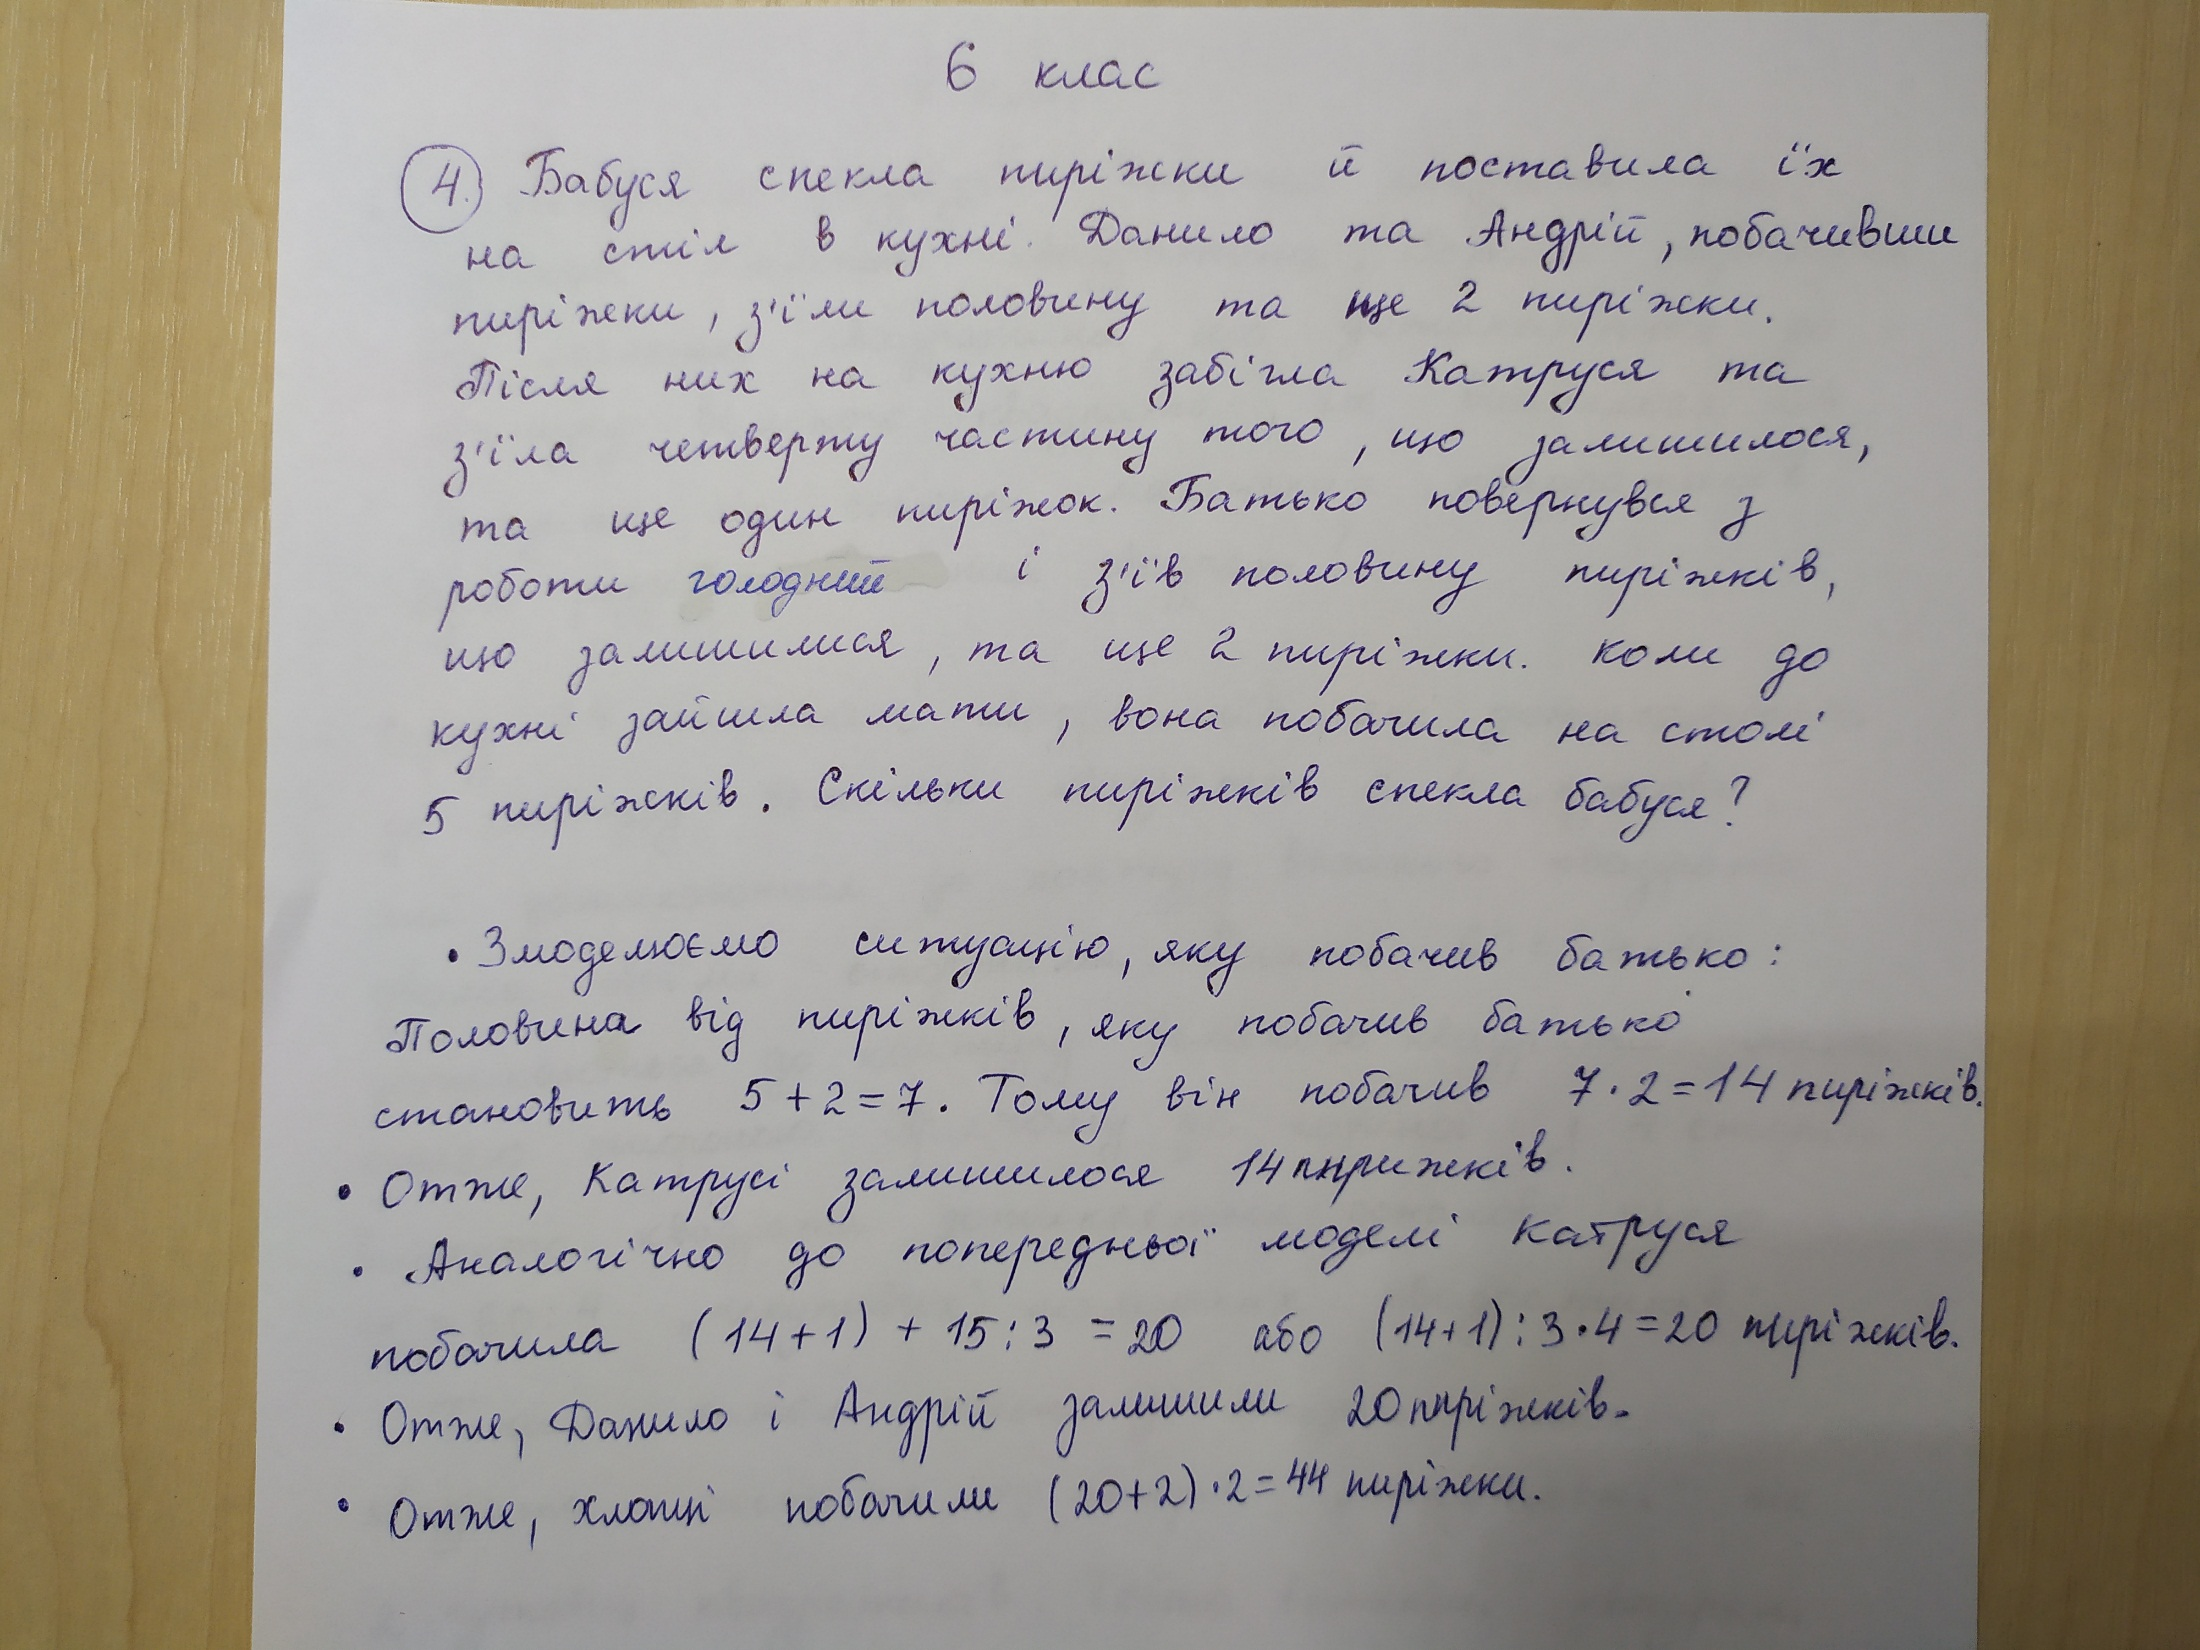 6 клас
4. Бабуся спекла пиріжки й поставила їх
на стіл в кухні. Данило та Андрій, побачивши
пиріжки, з'їли половину та ще 2 пиріжки.
Після них на кухню забігла Катруся та
з'їла четверту частину того, що залишилося,
та ще один пиріжок. Батько повернувся з
роботи голодний і з'їв половину пиріжків,
що залишилися, та ще 2 пиріжки. Коли до
кухні зайшла мати, вона побачила на столі
5 пиріжків. Скільки пиріжків спекла бабуся?
• Змоделюємо ситуацію, яку побачив батько:
Половина від пиріжків, яку побачив батько
становить 5+2=7. Тому він побачив 7·2=14 пиріжків.
• Отже, Катрусі залишилося 14 пирижків.
• Аналогічно до попередньої моделі Катруся
побачила (14+1) + 15:3 = 20 або (14+1):3·4=20 пиріжків.
• Отже, Данило і Андрій залишили 20 пиріжків.
• Отже, хлопці побачили (20+2)·2=44 пиріжки.